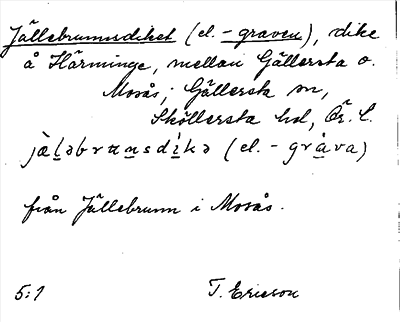 Jällebrunnsdiket (el. -graven), dike
å Härminge, mellan Gällersta o.
Mosås; Gällersta sn,
Sköllersta hd, Ör. l.
jälǝbrunsdikǝ (el. -gràva)
från Jällebrunn i Mosås.
5:1 T. Ericson